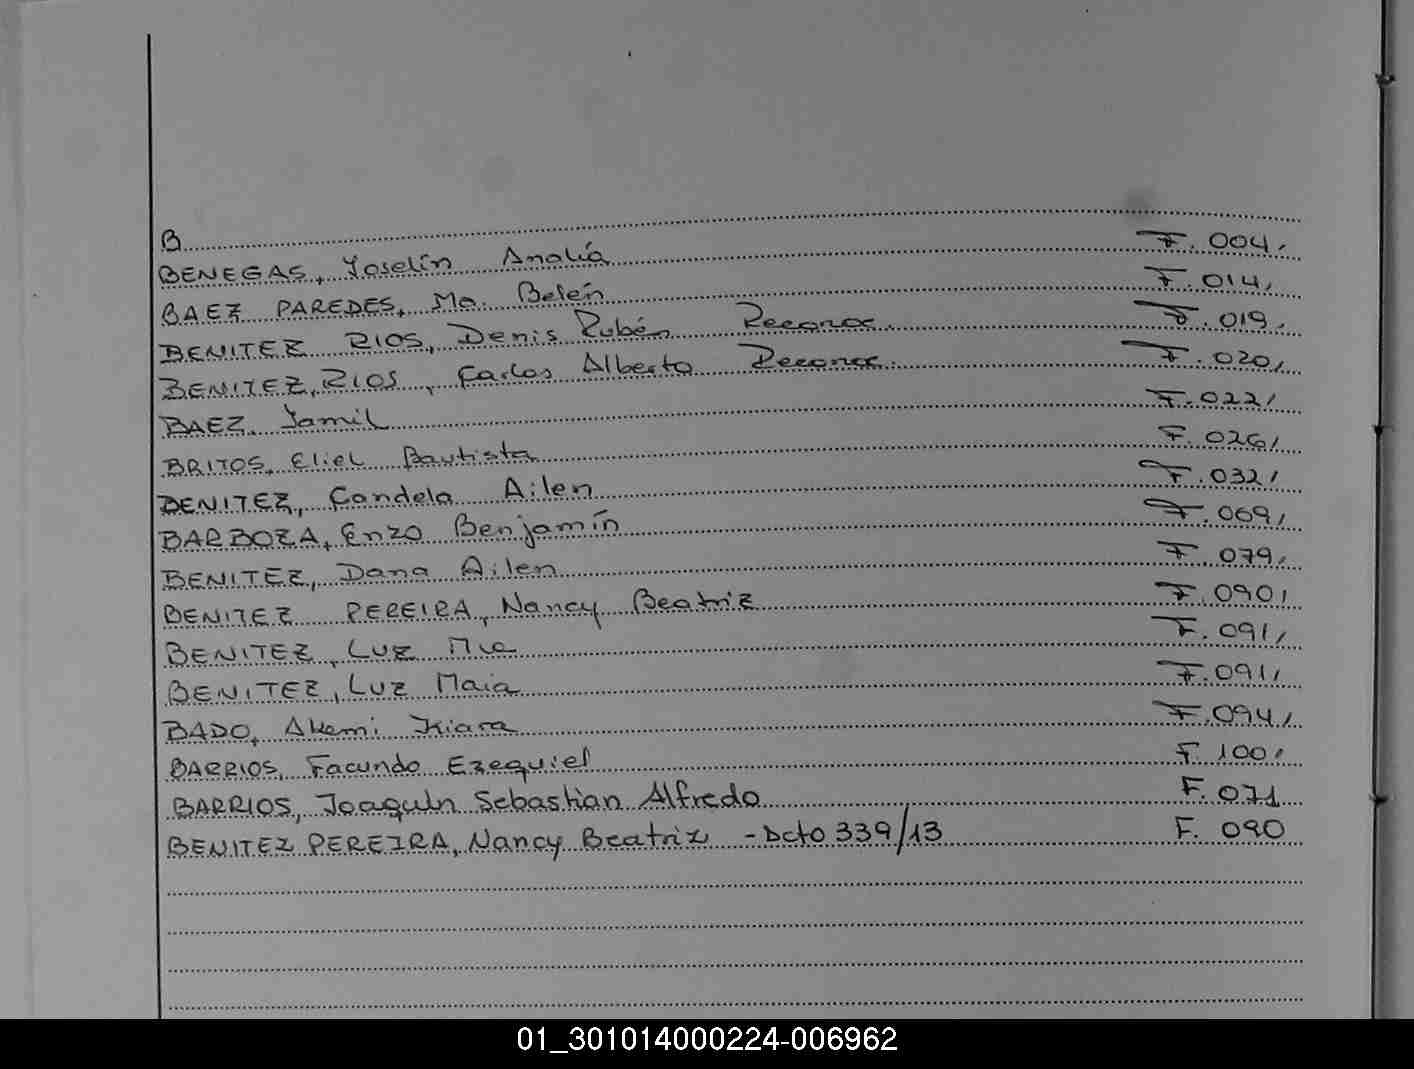 B
BENEGAS, Yoselín Analiá F. 004,
BAEZ PAREDES, Ma. Belén F. 014,
BENITEZ RIOS, Denis Rubén Reconoc. F. 019,
BENITEZ, RIOS, Carlos Alberto Reconoc. F. 020,
BAEZ, Yamil F. 022,
BRITOS, Eliel Bautista F. 026,
BENITEZ, Candela Ailen F. 032,
BARBOZA, Enzo Benjamín F. 069,
BENITEZ, Dana Ailen F. 079,
BENITEZ PEREIRA, Nancy Beatriz F. 090,
BENITEZ, Luz Mia F. 091,
BENITEZ, Luz Maia F. 091,
BADO, Akemi Kiara F. 094,
BARRIOS, Facundo Ezequiel F. 100,
BARRIOS, Joaquín Sebastian Alfredo F. 071
BENITEZ PEREIRA, Nancy Beatriz - Dcto 339/13 F. 090
01_301014000224-006962